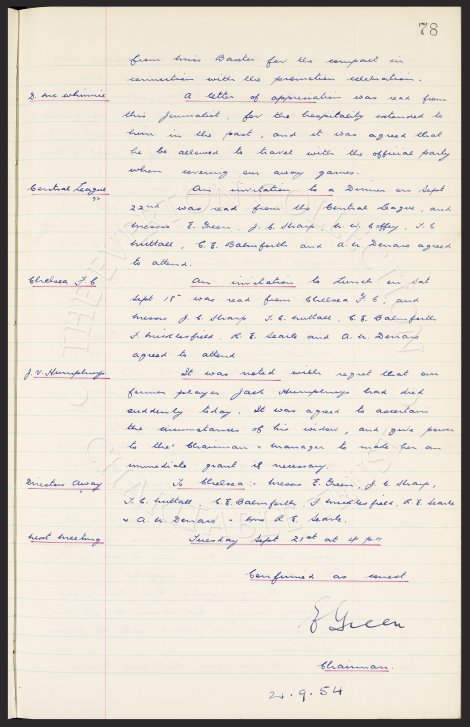 78
from Miss Baxter for the compact in
connection with the promotion celebration.
D. Mc Whinnie A letter of appreciation was read from
this journalist, for the hospitality extended to
him in the past, and it was agreed that
he be allowed to travel with the official party
when covering our away games.
Central League An invitation to a Dinner on Sept
22nd was read from the Central League, and
Messrs E. Green, J. C. Sharp, W. W. Coffey, T. C.
Nuttall, C. E. Balmforth and A. W. Denaro agreed
to attend.
Chelsea F. C An invitation to Lunch on Sat
Sept 18th was read from Chelsea F. C, and
Messrs J. C. Sharp, T. C. Nuttall, C. E. Balmforth
F. Micklesfield, R. E. Searle and A. W. Denaro
agreed to attend
J. V. Humphreys It was noted with regret that our
former player Jack Humphreys had died
suddenly today. It was agreed to ascertain
the circumstances of his widow, and give power
to the Chairman & manager to make her an
immediate grant if necessary.
Directors Away To Chelsea :- Messrs E. Green, J. C. Sharp,
T. C. Nuttall, C. E. Balmforth, F. Micklesfield, R. E. Searle
& A. W. Denaro - Mrs R. E. Searle.
Next Meeting Tuesday Sept 21st at 4 pm
Confirmed as correct
E Green
Chairman.
21.9.54